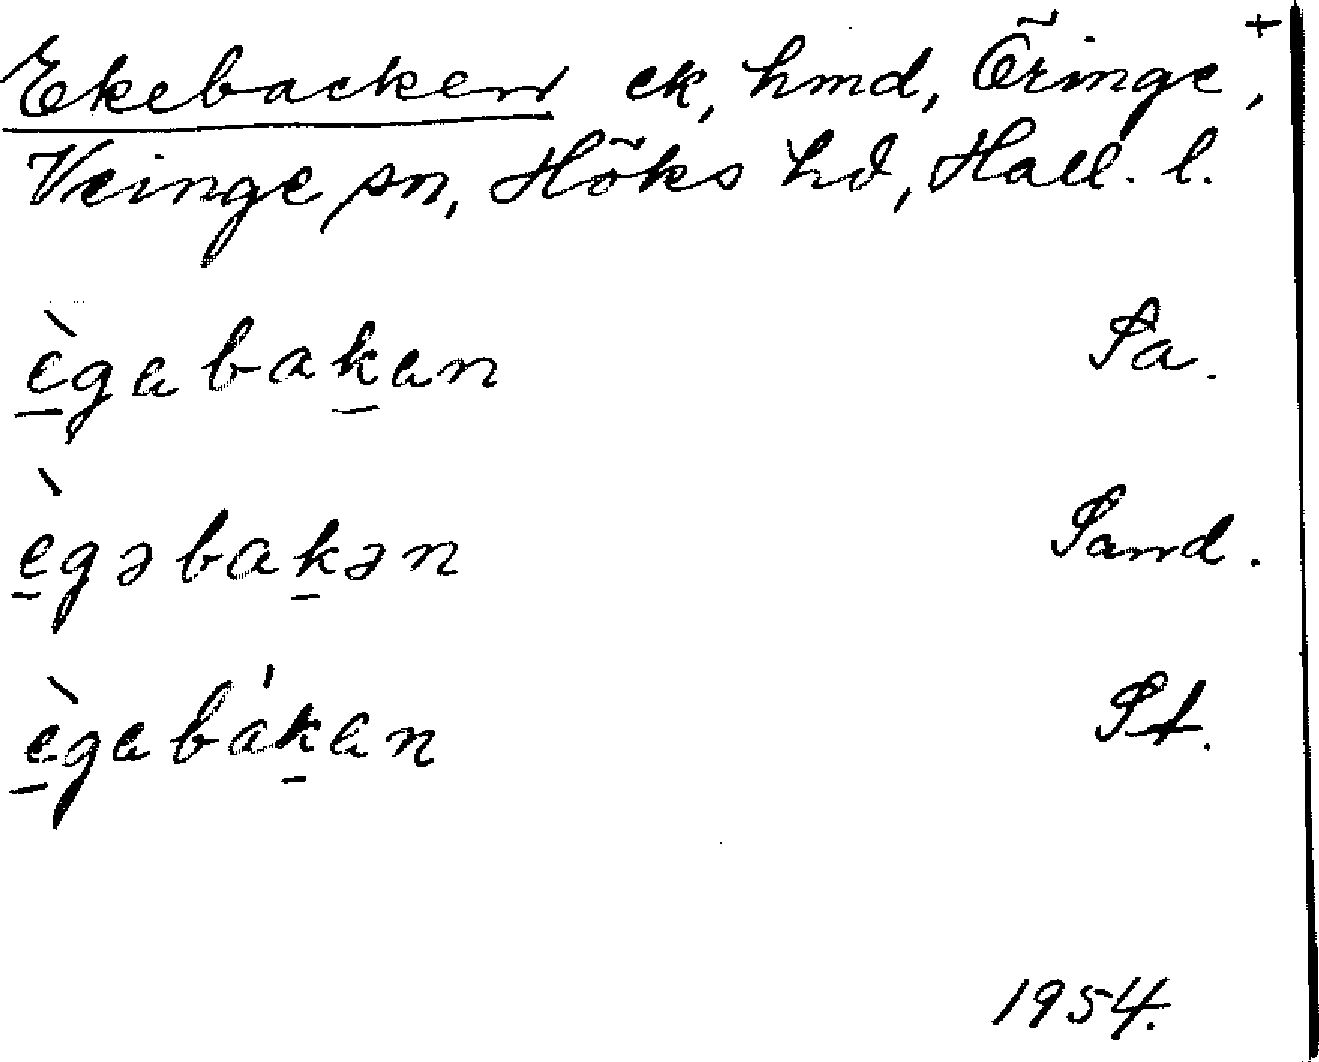 Ekebacken ek, hmd, Öringe, +
Veinge sn, Höks hd, Hall. l.
è̱gabaḵan Sa.
è̱gəbaḵən Sand.
è̱gabáḵan St.
1954.